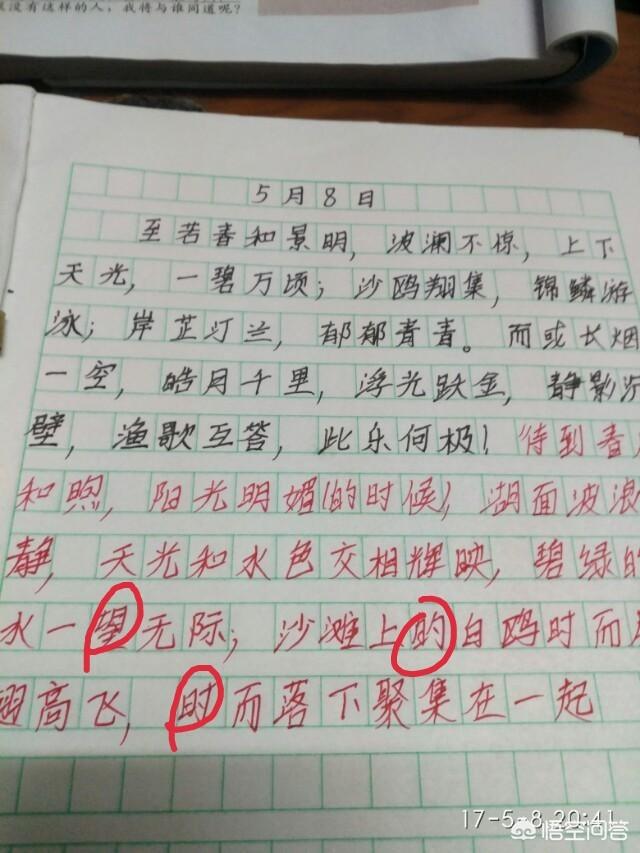 没有这样的人，我将与谁同道呢？
5月8日
至若春和景明，波澜不惊，上下
天光，一碧万顷；沙鸥翔集，锦鳞游
泳；岸芷汀兰，郁郁青青。而或长烟
一空，皓月千里，浮光跃金，静影沉
璧，渔歌互答，此乐何极！待到春
和煦，阳光明媚(的时候)，湖面波浪
静，天光和水色交相辉映，碧绿的
水一望无际；沙滩上的白鸥时而
翅高飞，时而落下聚集在一起
17-5-8 20:41
悟空问答